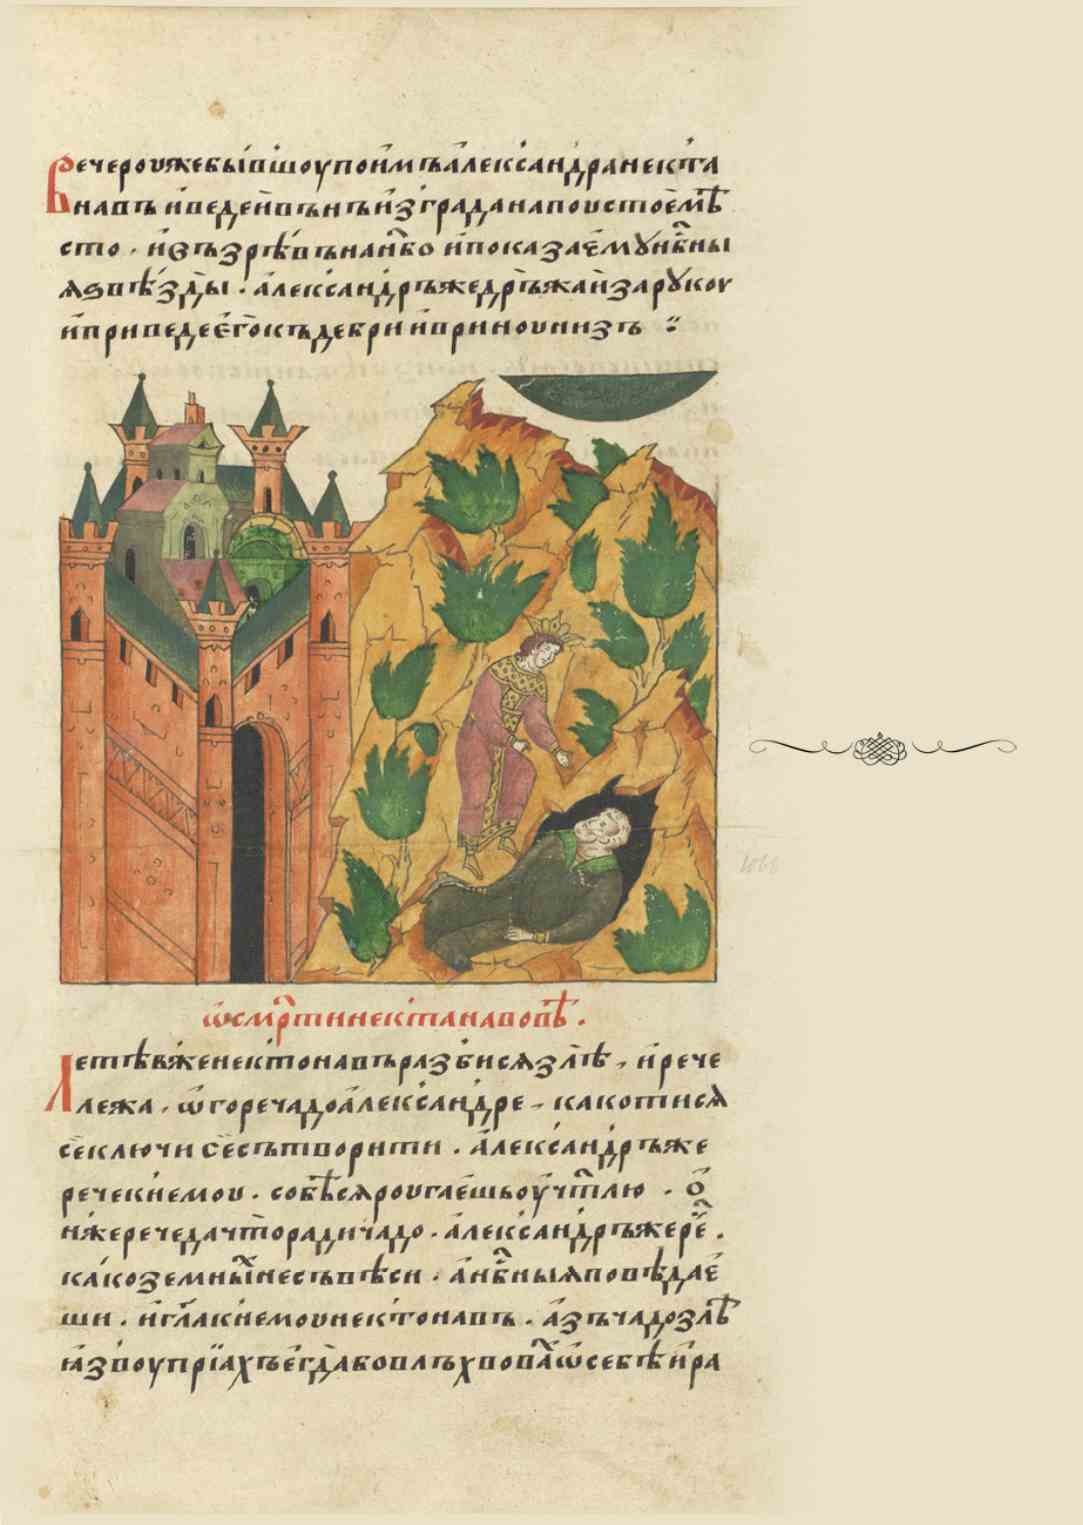 Вечероужебы́вшоупои́мъа́леѯа́ндранекⷮта
навъ и́ведеи́въньи́зграданапоустое́мⷭѣ
сто · и҆въззрѣ́въна́нбⷪо и҆показае́мꙋ̀нбⷭ҇ны
ѧѕвѣ́зды · а́лекса́ндръжедръжаи҆зарꙋкоу
и҆приведее́го̀къдебри и҆вриноунизъ
ѡ҆смрⷭ҇тинекта́навовѣ .
Летѣвженекто́навъразбисѧзлѣ̀ , и҆рече
лежа , ѡ҆горечадоа́лекса́ндре , какотисѧ
се́ключи се́сътворити . а́лекса́ндръже
речекне́моу . собѣсѧроуглае́шьоу҆чтⷧ҇лю . ѻ҆
нже́речедачто̀радича́до . а́лекса́ндръжерⷱ҇е́ .
ка́коземны́ⷯнесъвѣ́си . а҆нбⷭ҇ныѧповѣ́дае́
ши . и҆гл҃акне́моунекто́навъ . а҆зъчадозлѣ
ꙗ҆́звоупрїа́хъе҆гда́вовлъхвова́ⷯѡ҆себѣ̀ и҆ра